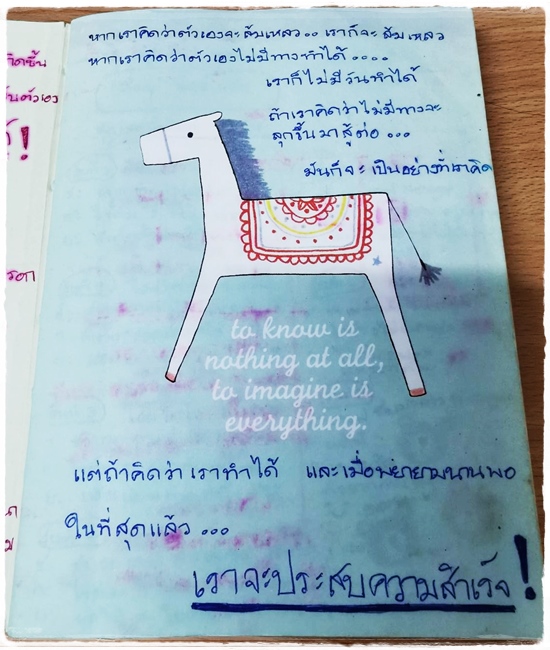 หากเราคิดว่าตัวเองจะล้มเหลว.. เราก็จะ ล้มเหลว
หากเราคิดว่าตัวเองไม่มีทางทำได้ ....
เราก็ไม่มีวันทำได้
ถ้าเราคิดว่าไม่มีทางจะ
ลุกขึ้นมาสู้ต่อ ...
มันก็จะ เป็นอย่างที่เราคิด
to know is
nothing at all,
to imagine is
everything.
แต่ถ้าคิดว่า เราทำได้ และเมื่อพยายามนานพอ
ในที่สุดแล้ว ...
เราจะประสบความสำเร็จ!